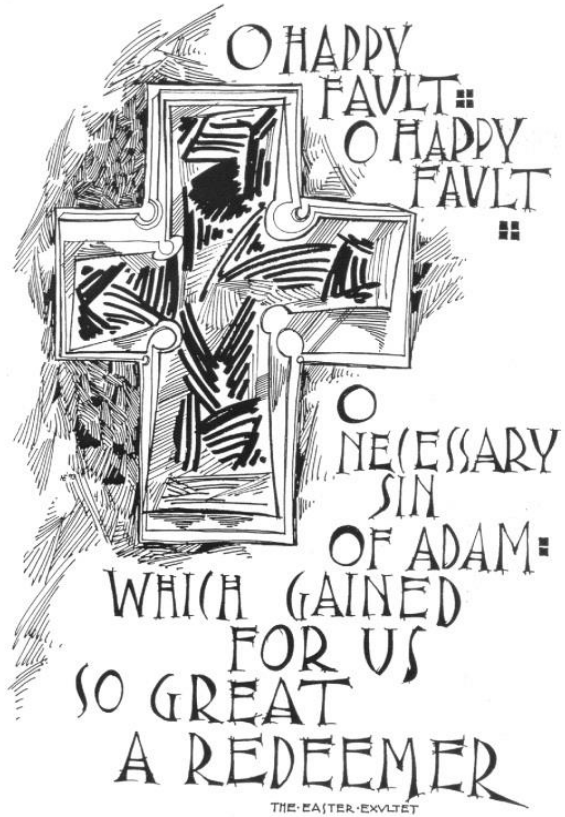 O HAPPY
FAVLT::
O HAPPY
FAVLT
::
O
NECESSARY
SIN
OF ADAM:
WHICH GAINED
FOR US
SO GREAT
A REDEEMER
THE·EASTER·EXVLTET